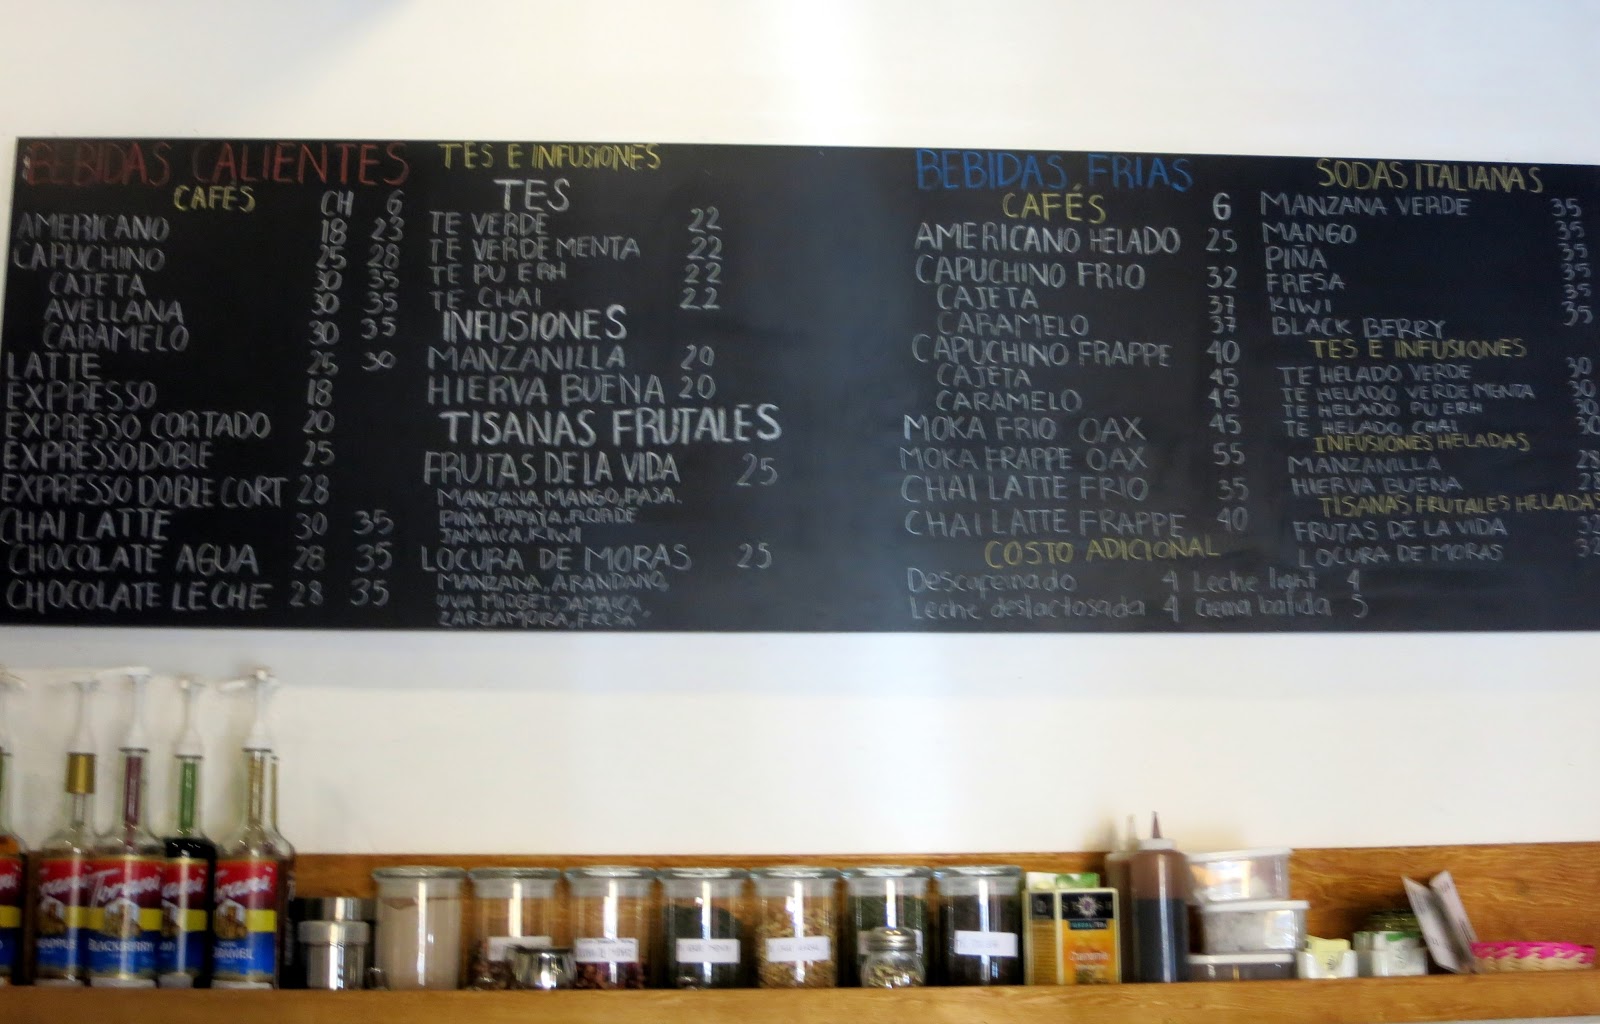 BEBIDAS CALIENTES
CAFÉS CH G
AMERICANO 18 23
CAPUCHINO 25 28
CAJETA 30 35
AVELLANA 30 35
CARAMELO 30 35
LATTE 25 30
EXPRESSO 18
EXPRESSO CORTADO 20
EXPRESSO DOBLE 25
EXPRESSO DOBLE CORT 28
CHAI LATTE 30 35
CHOCOLATE AGUA 28 35
CHOCOLATE LECHE 28 35
TES E INFUSIONES
TES
TE VERDE 22
TE VERDE MENTA 22
TE PU ERH 22
TE CHAI 22
INFUSIONES
MANZANILLA 20
HIERVA BUENA 20
TISANAS FRUTALES
FRUTAS DE LA VIDA 25
MANZANA, MANGO, PASA.
PIÑA, PAPAYA, FLOR DE
JAMAICA, KIWI
LOCURA DE MORAS 25
MANZANA, ARANDANO,
UVA MIDGET, JAMAICA,
ZARZAMORA, FRESA
BEBIDAS FRIAS
CAFÉS G
AMERICANO HELADO 25
CAPUCHINO FRIO 32
CAJETA 37
CARAMELO 37
CAPUCHINO FRAPPE 40
CAJETA 45
CARAMELO 45
MOKA FRIO OAX 45
MOKA FRAPPE OAX 55
CHAI LATTE FRIO 35
CHAI LATTE FRAPPE 40
COSTO ADICIONAL
Descafeinado 4 Leche light 4
Leche deslactosada 4 Crema batida 5
SODAS ITALIANAS
MANZANA VERDE 35
MANGO 35
PIÑA 35
FRESA 35
KIWI 35
BLACK BERRY
TES E INFUSIONES
TE HELADO VERDE 30
TE HELADO VERDE MENTA 30
TE HELADO PU ERH 30
TE HELADO CHAI 30
INFUSIONES HELADAS
MANZANILLA 28
HIERVA BUENA 28
TISANAS FRUTALES HELADAS
FRUTAS DE LA VIDA 32
LOCURA DE MORAS 32
Torani
BLACKBERRY